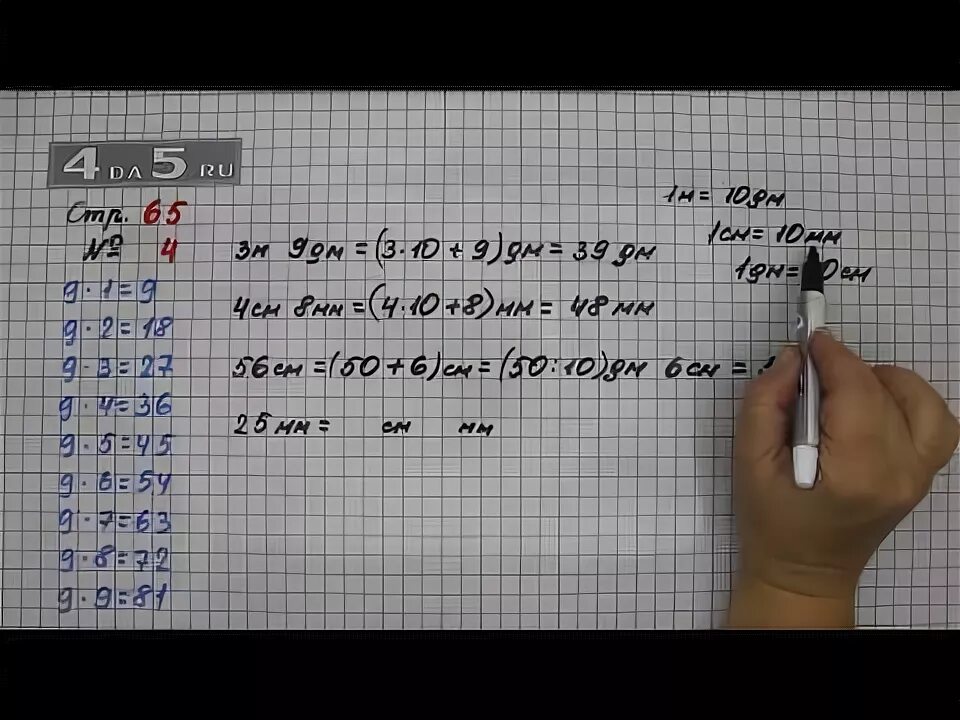 4 DA 5 RU
Стр. 65
№ 4
9 · 1 = 9
9 · 2 = 18
9 · 3 = 27
9 · 4 = 36
9 · 5 = 45
9 · 6 = 54
9 · 7 = 63
9 · 8 = 72
9 · 9 = 81
1м = 10дм
1см = 10мм
1дм = 0см
3м 9дм = (3·10 + 9) дм = 39 дм
4см 8мм = (4·10+8) мм = 48 мм
56см = (50 + 6) см = (50:10) дм 6см =
25мм = см мм